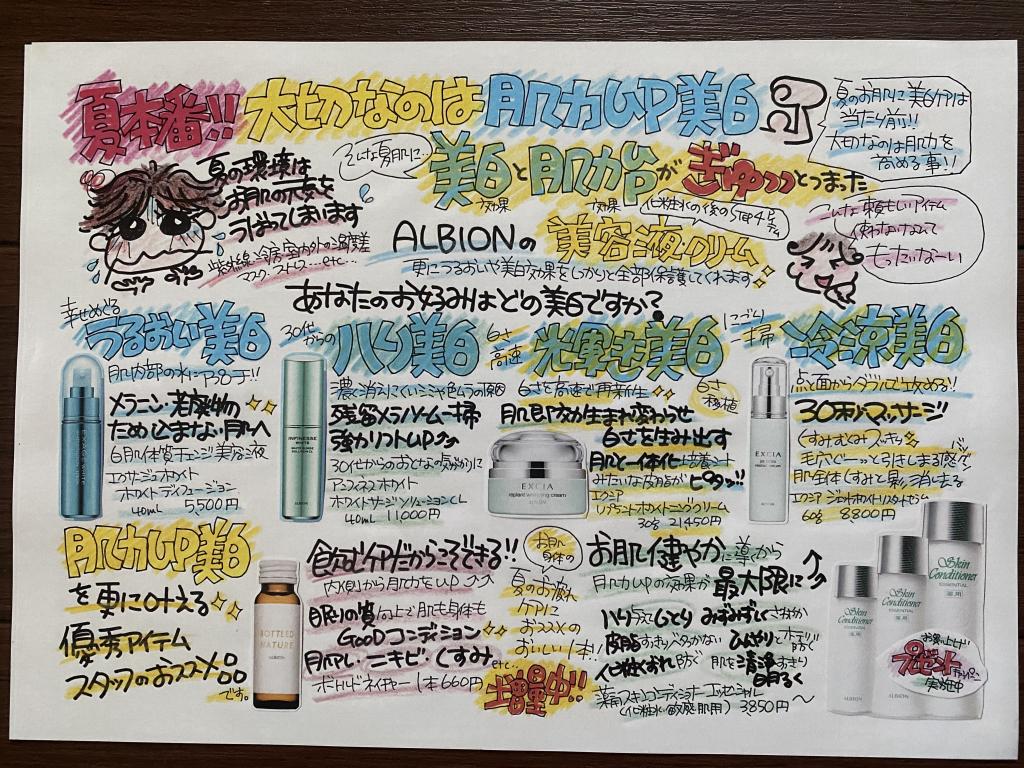 夏本番!! 大切なのは 肌力UP美白
夏のお肌に美白ケアは
当たり前!!
大切なのは肌力を
高める事!!
夏の環境は
お肌の元気を
うばってしまいます
紫外線・冷房・室内外の温度差
マスク、ストレス…etc…
そんな夏肌に…
美白と肌力UPが ぎゅっっっとつまった
効果 効果
化粧水の後のSTEP4アイテム
ALBIONの 美容液・クリーム
更にうるおいや美白効果をしっかりと全部保護してくれます
こんな頼もしいアイテム
使わないなんて
もったいなーい
あなたのお好みはどの美白ですか?
幸せめぐる
うるおい美白
肌内部の水にアプローチ!!
メラニン・老廃物の
ため込まない肌へ
6肌体質チェンジ美容液
エクサージュホワイト
ホワイトディフュージョン
40ml 5,500円
30代からの
ハリ美白
濃く消えにくいシミや色ムラの原因
残留メラノソーム一掃
強力リフトUP
30代からのおとなの気がかりに
アンフィネスホワイト
ホワイトサージソリューションCL
40ml 11,000円
INFINESSE
WHITE
ALBION
白さ高速
光輝透美白
白さを高速で再新生
肌自身が生まれ変わらせ
白さを生み出す
白さ移植
肌と一体化する培養シート
みたいな皮ふ膜がピタッ!!
エクシア
リプラントホワイトニングクリーム
30g 21,450円
EXCIA
replant whitening cream
ALBION
にごり一掃
冷涼美白
点と面からダブルで攻める!!
30秒マッサージ
くすみ・よどみスッキリ
毛穴ぐーっと引きしまる感で
肌全体しまりと影消え去る
8,800円
60g
EXCIA
肌力UP美白
を更に叶える
優秀アイテム
スタッフのおススメ品
です。
BOTTLED
NATURE
ALBION
飲むケアだからこそできる!!
内側から肌力をUP
眠りの質向上で肌も身体も
GOODコンディション
肌荒れ・ニキビ・くすみ etc…
ボトルドネイチャー 1本660円
お肌身体の
夏のお疲れ
ケアに
おススメの
おいしい1本!!
増量中!!
お肌健やかに導くから
肌力UPの効果が最大限に
ハリ与えしっとり みずみずしくさわやか
皮脂すっきりベタつかない ひんやりとホテリ防ぐ
化粧くずれ防ぐ 肌を清浄すっきり明るく
薬用スキンコンディショナー エッセンシャル
(化粧水・敏感肌用) 3,850円〜
Skin
Conditioner
ESSENTIAL
薬用
ALBION
お買い上げで
プレゼント
キャンペーン
実施中